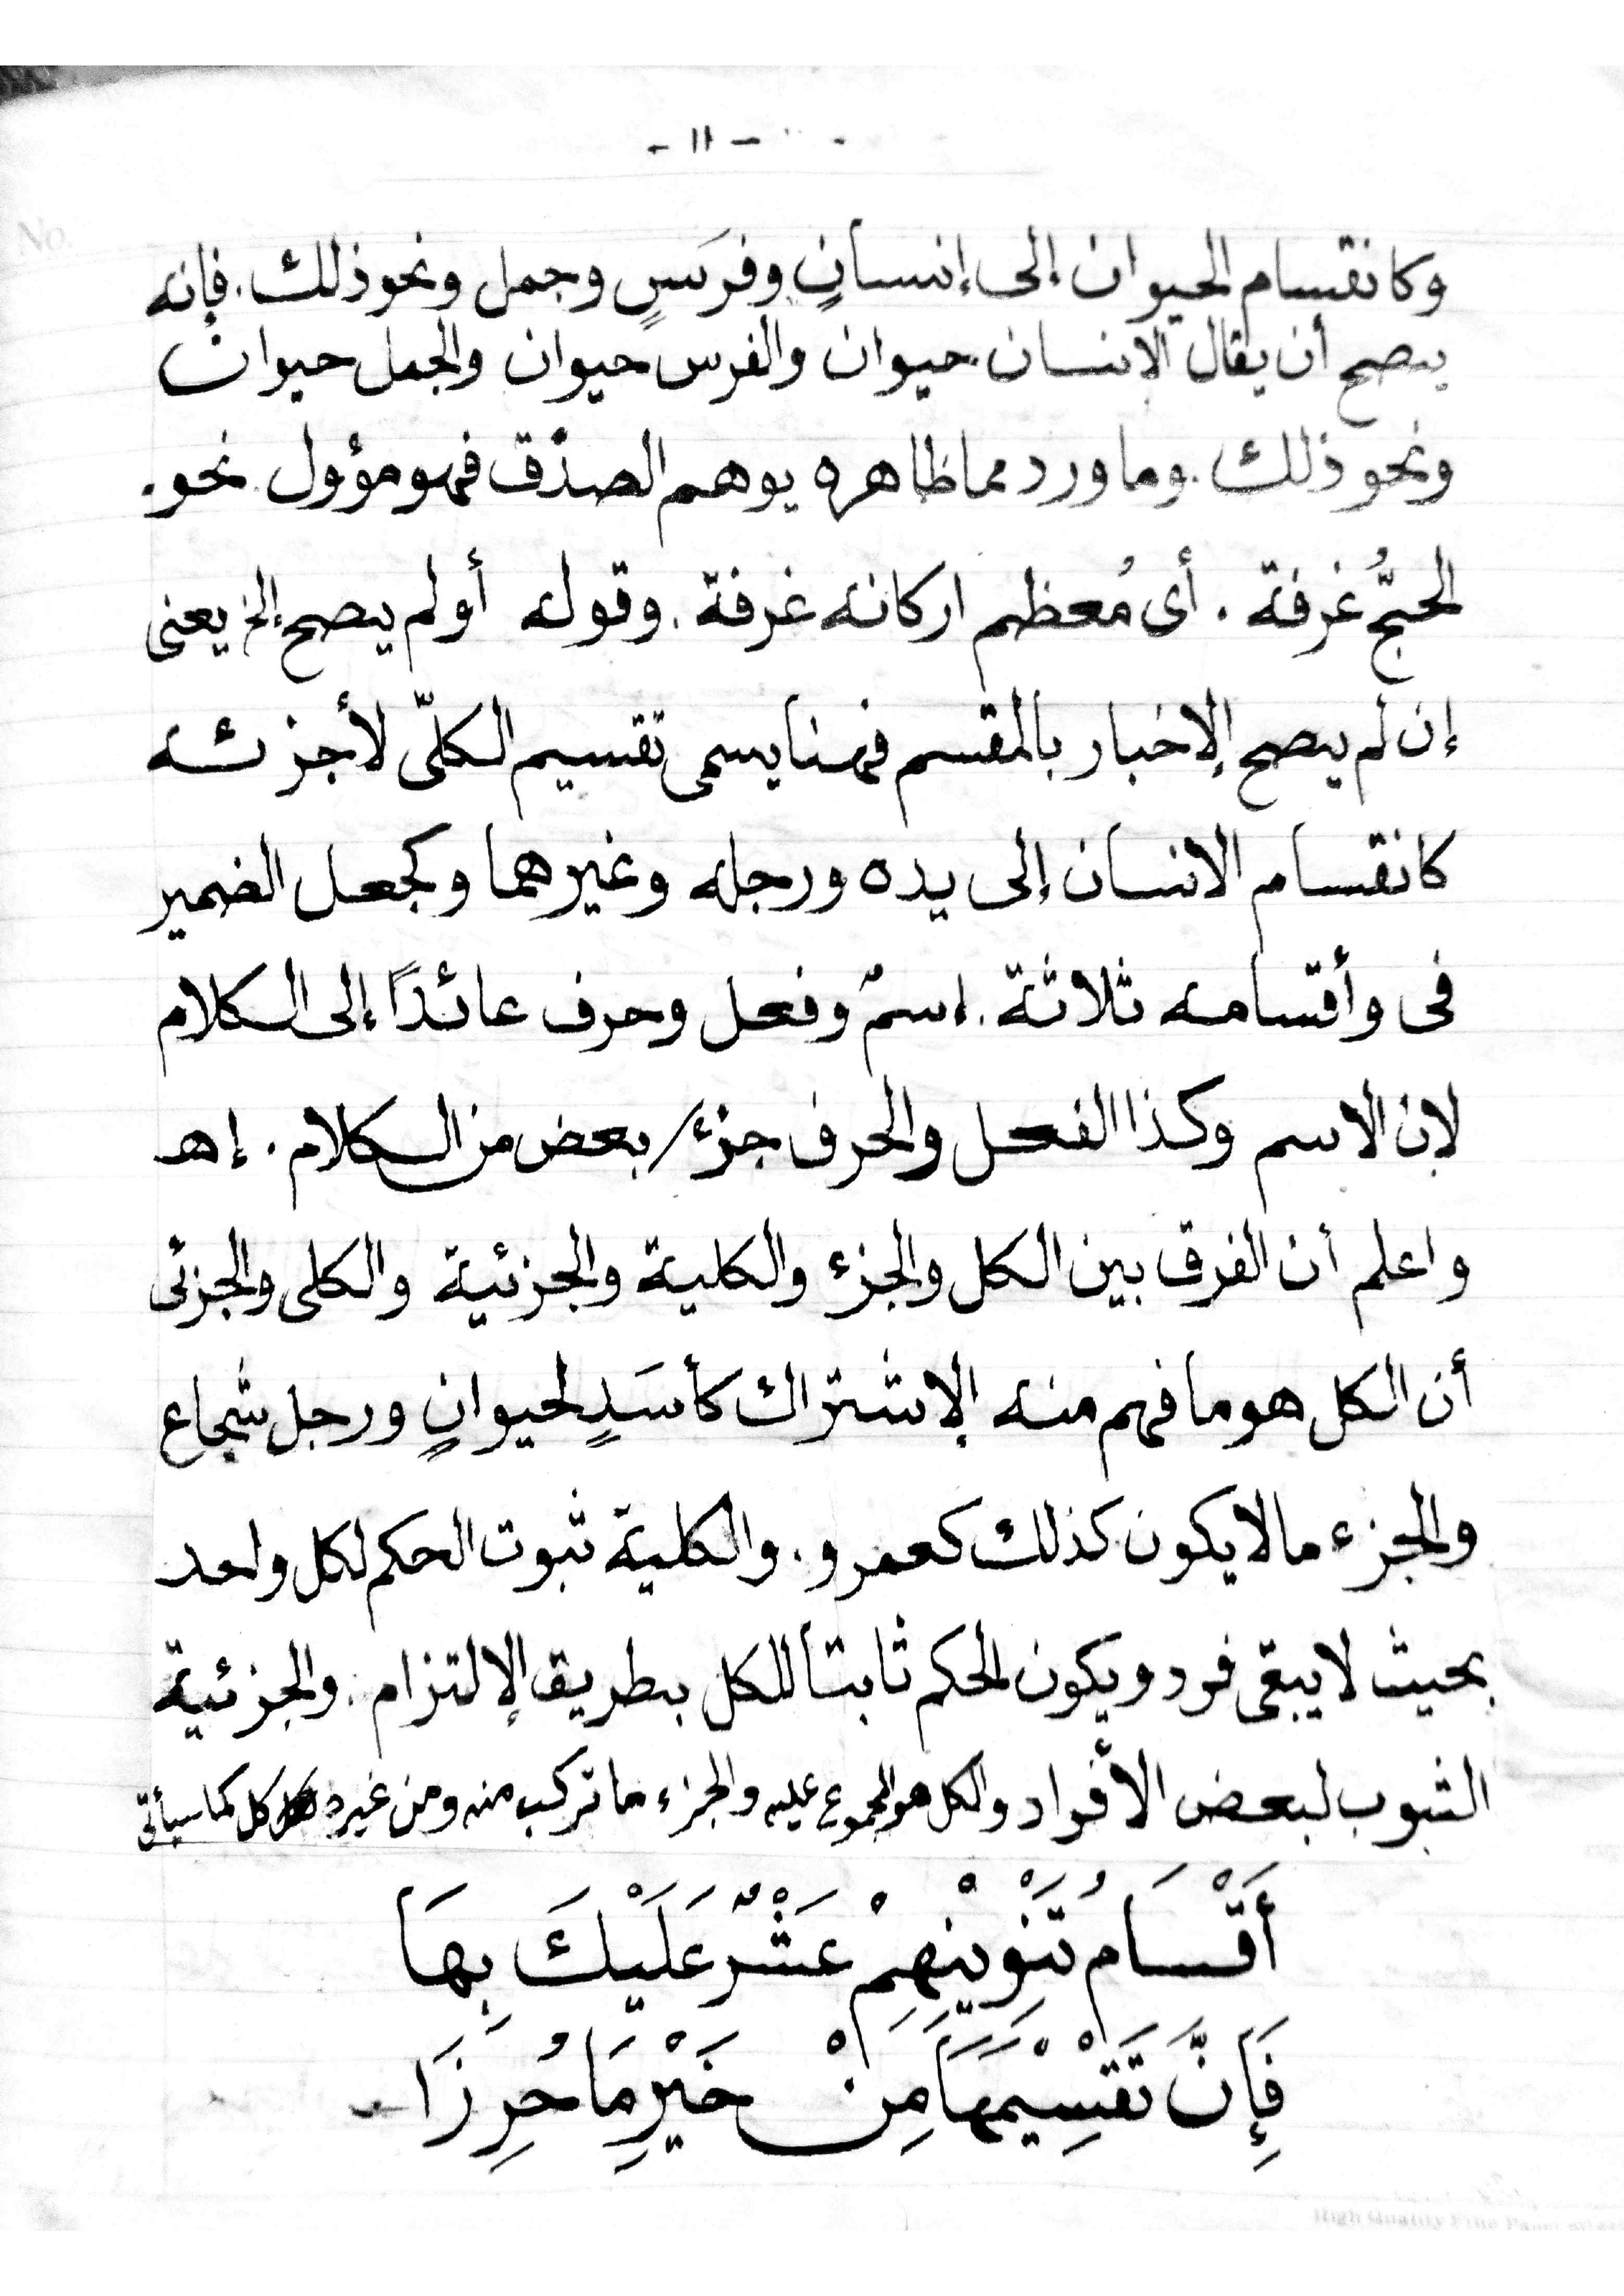 - ١١ -
وكانقسام الحيوان إلى إنسانٍ وفرَسٍ وجمل ونحو ذلك. فإنه
يصح أن يقال الانسان حيوان والفرس حيوان والجمل حيوانٌ
ونحو ذلك. وما ورد مما ظاهره يوهم الصدْق فهو مؤول نحو.
الحجُّ عُرفة. أى مُعظم اركانه عَرفة. وقوله أو لم يصح إلخ يعنى
إن لم يصح الإخبار بالمقسم فهنا يسمى تقسيم الكلّى لأجزئه
كانقسام الانسان إلى يده ورجله وغيرهما وكجعل الضمير
فى وأقسامه ثلاثة. إسمٌ وفعل وحرف عائدًا إلى الكلام
لإن الاسم وكذا الفعل والحرف جزء/ بعض من الكلام. إهـ
واعلم أن الفرق بين الكل والجزء والكلية والجزئية والكلى والجزئى
أن الكل هو ما فهم منه الإشتراك كأسَدٍ لحيوانٍ ورجل شجاع
والجزء مالا يكون كذلك كعمرو. والكلية ثبوت الحكم لكل واحد
بحيث لا يبقى فرد ويكون الحكم ثابتا للكل بطريق الإلتزام. والجزئية
الثبوب لبعض الأفراد والكل هو المجموع عليه والجزء ما تركب منه ومن غيره كل كما سيأتى
أَقْسَامُ تَنْوِيْنِهِمْ عَشْرٌ عَلَيْكَ بِهَا
فَإِنَّ تَقْسِيْمَهَا مِنْ خَيْرِ مَا حُرِزَا
High Quality Fine Paper
No.